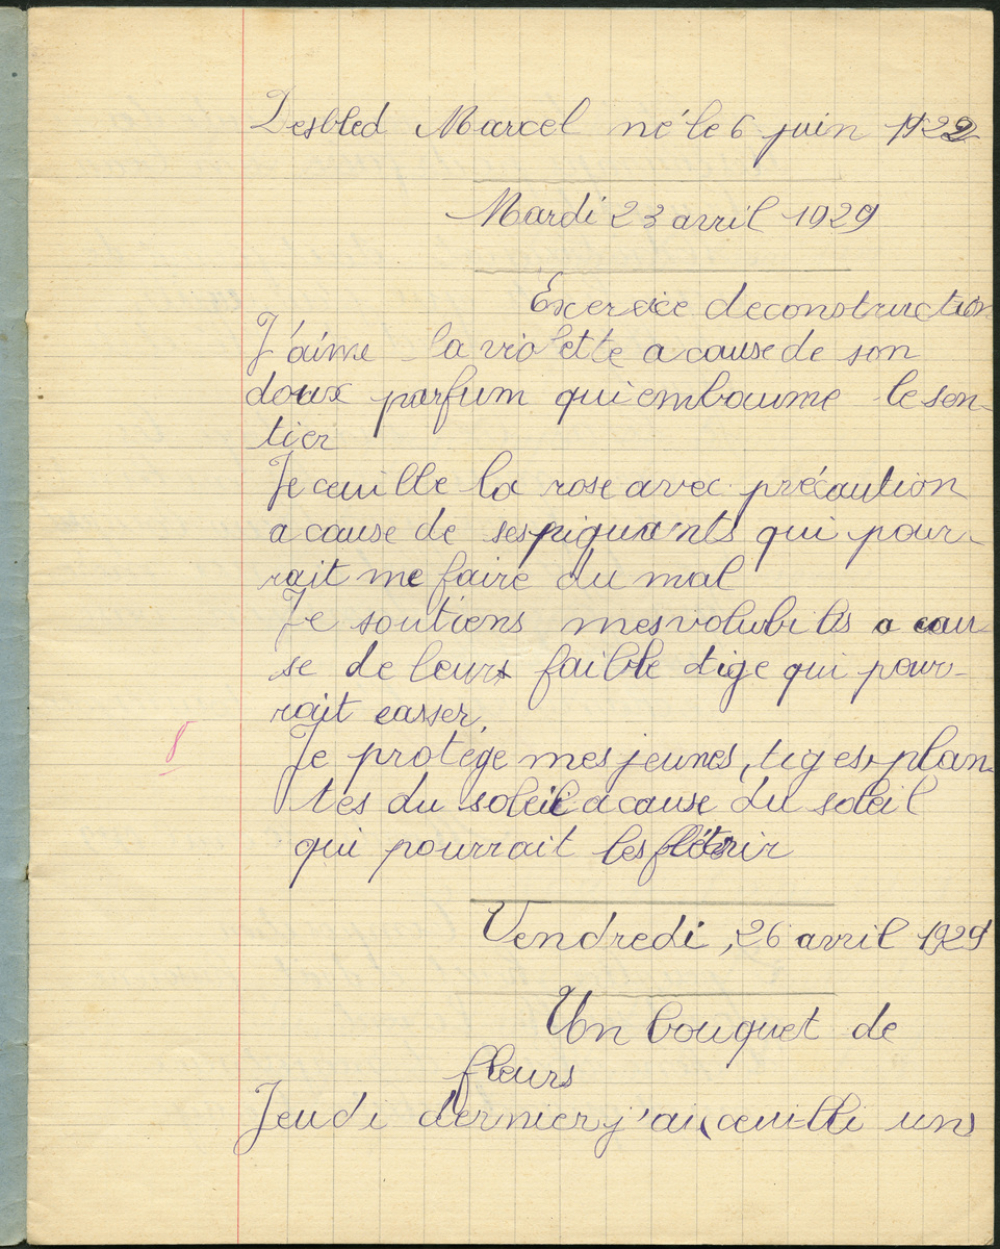 Desbled Marcel né le 6 juin 1922
Mardi 23 avril 1929
Exercice de construction
J'aime la violette a cause de son
doux parfum qui embaume le sen-
tier
Je ceuille la rose avec précaution
a cause de ses piquants qui pour-
rait me faire du mal
Je soutiens mes volubilis a cau
se de leurs faible tige qui pour-
rait casser.
8
Je protége mes jeunes, tiges, plan
tes du soleil a cause du soleil
qui pourrait les flétrir
Vendredi, 26 avril 1929
Un bouquet de
fleurs
Jeudi dernier j'ai ceuilli uns